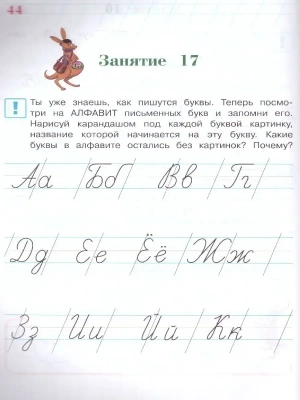 44
Занятие 17
! Ты уже знаешь, как пишутся буквы. Теперь посмо-
три на АЛФАВИТ письменных букв и запомни его.
Нарисуй карандашом под каждой буквой картинку,
название которой начинается на эту букву. Какие
буквы в алфавите остались без картинок? Почему?
Аа Бб Вв Гг
Дд Ее Ёё Жж
Зз Ии Йй Кк